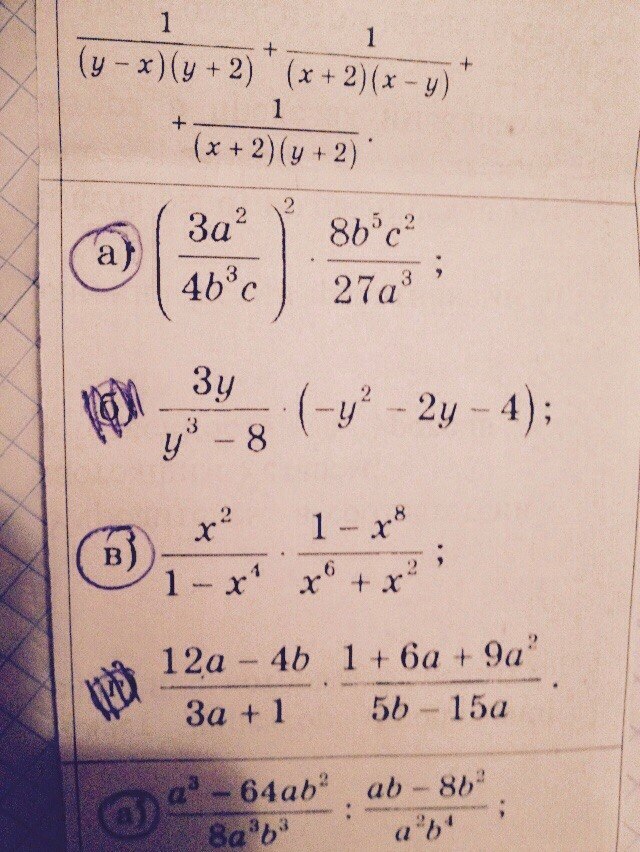 1/((y − x)(y + 2)) + 1/((x + 2)(x − y)) +
+ 1/((x + 2)(y + 2)).
а) (3a²/(4b³c))² · 8b⁵c²/(27a³);
б) 3y/(y³ − 8) · (−y² − 2y − 4);
в) x²/(1 − x⁴) · (1 − x⁸)/(x⁶ + x²);
г) (12a − 4b)/(3a + 1) · (1 + 6a + 9a²)/(5b − 15a).
а) (a³ − 64ab²)/(8a³b³) : (ab − 8b²)/(a²b⁴);